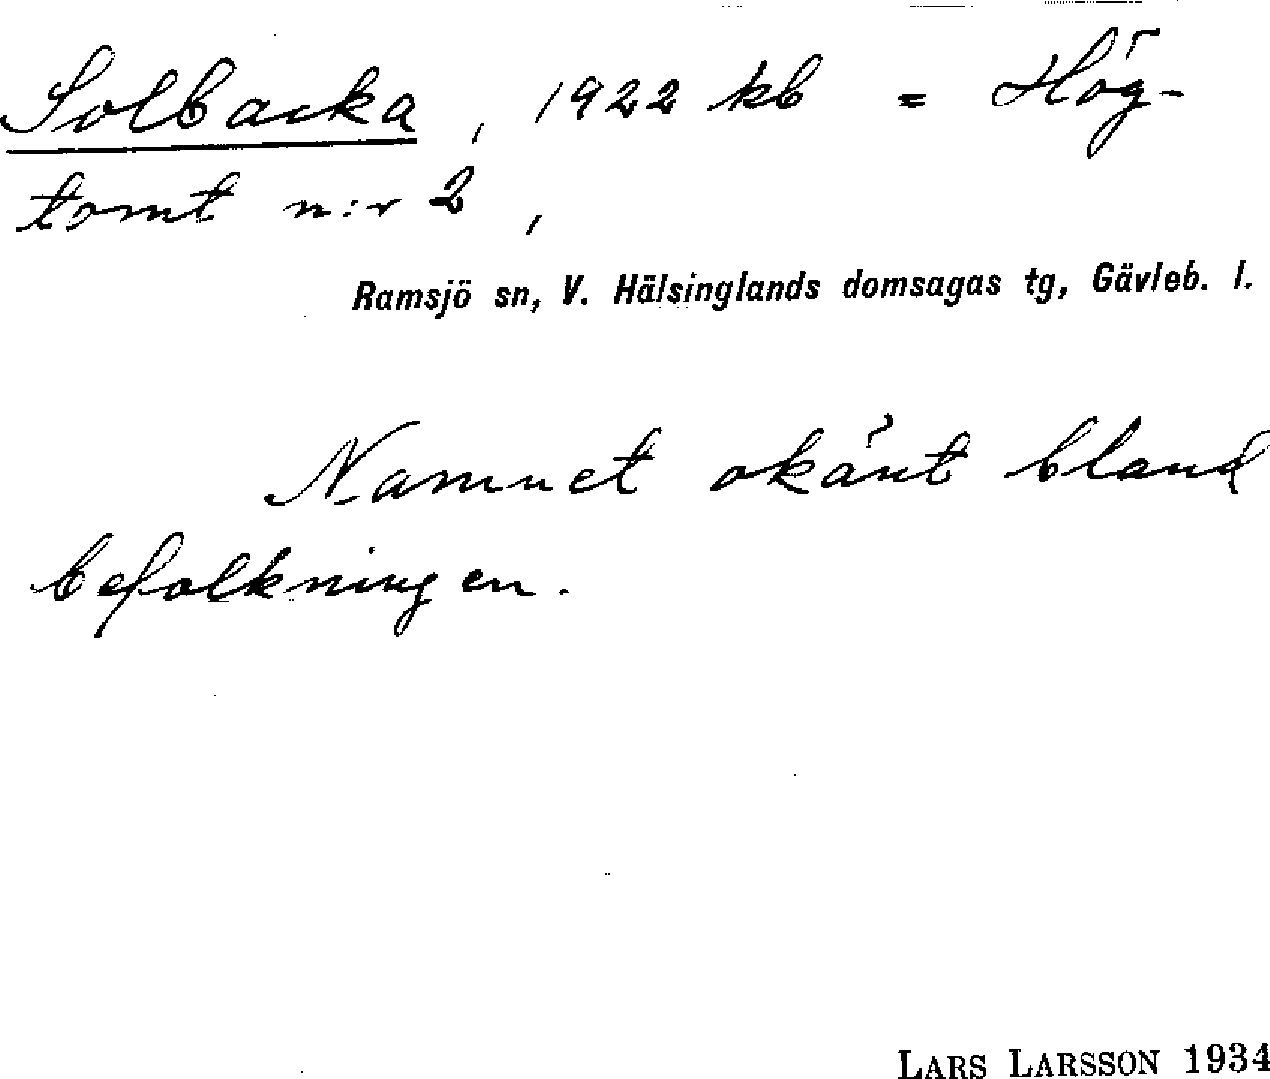 Solbacka, 1922 kb = Hög-
tomt n:r 2,
Ramsjö sn, V. Hälsinglands domsagas tg, Gävleb. l.
Namnet okänt bland
befolkningen.
LARS LARSSON 1934